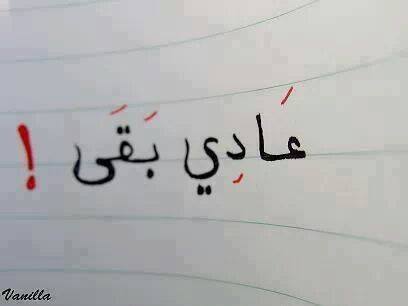 عَادِي بَقَى !
Vanilla